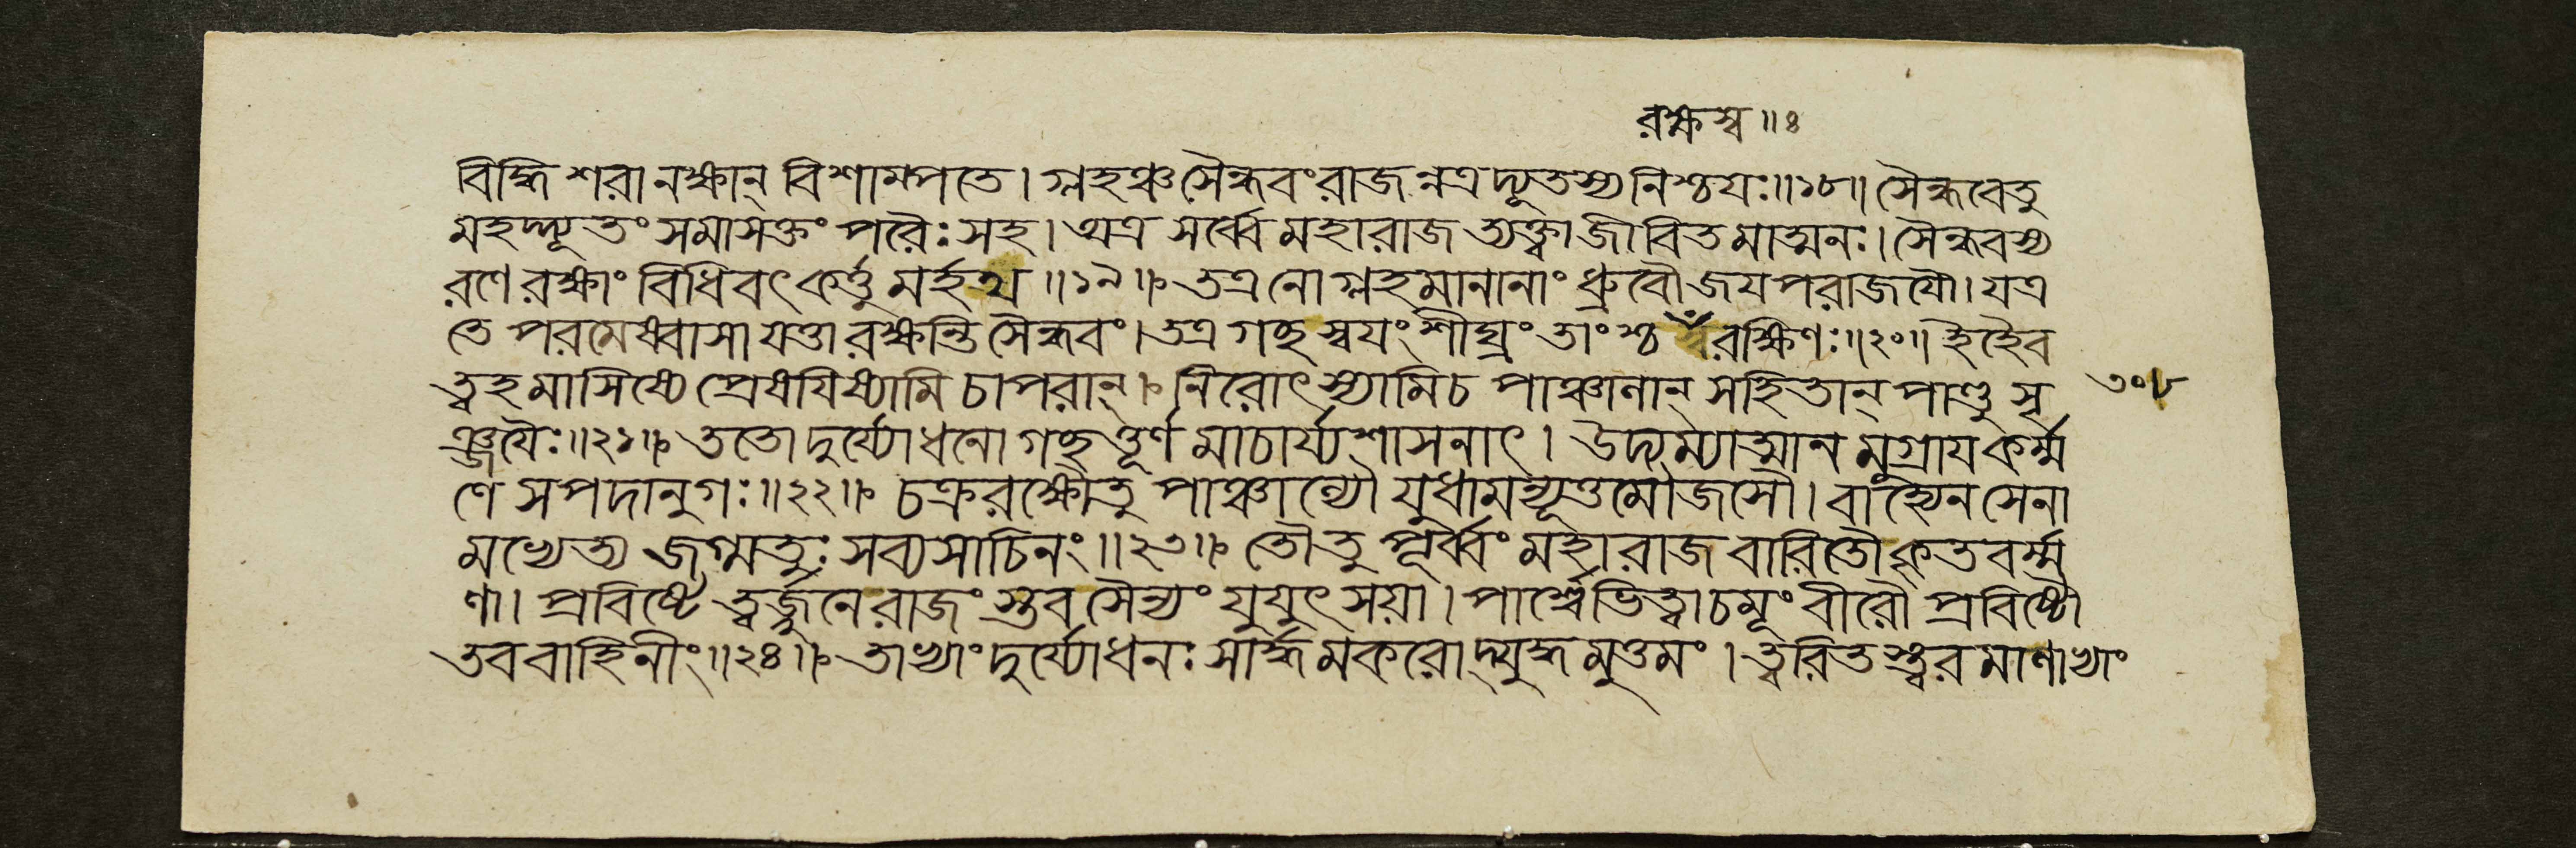 রক্ষস্ব ॥৪
বিদ্ধি শরানক্ষান্ বিশাম্পতে। গ্লহঞ্চ সৈন্ধবং রাজন্নত্র দ্যূতস্য নিশ্চয়ঃ॥১৮॥ সৈন্ধবেতু
মহদ্দ্যূতং সমাসক্তং পরৈঃ সহ। অত্র সর্ব্বে মহারাজ ত্যক্ত্বা জীবিতমাত্মনঃ। সৈন্ধবস্য
রণে রক্ষাং বিধিবৎ কর্ত্তুমর্হথ॥১৯॥ তত্র নো গ্লহমানানাং ধ্রুবৌ জয়পরাজয়ৌ। যত্র
তে পরমেষ্বাসা যত্তা রক্ষন্তি সৈন্ধবং। তত্র গচ্ছ স্বয়ং শীঘ্রং তাংশ্চ রক্ষিণঃ॥২০॥ ইহৈব
ত্বহমাসিষ্যে প্রেষয়িষ্যামি চাপরান্। নিরোৎস্যামি চ পাঞ্চালান্ সহিতান্ পাণ্ডুসৃ
ঞ্জয়ৈঃ॥২১॥ ততো দুর্য্যোধনো গচ্ছত্তূর্ণমাচার্য্যশাসনাৎ। উদ্যম্যাত্মানমুগ্রায় কর্ম্ম
ণে সপদানুগঃ॥২২॥ চক্ররক্ষৌতু পাঞ্চাল্যৌ যুধামন্যূত্তমৌজসৌ। বাহ্যেন সেনা
মভ্যেত্য জগ্মতুঃ সব্যসাচিনং॥২৩॥ তৌতু পূর্ব্বং মহারাজ বারিতৌ কৃতবর্ম্ম
ণা। প্রবিষ্টে ত্বর্জ্জুনে রাজংস্তব সৈন্যং যুযুৎসয়া। পার্শ্বে ভিত্ত্বা চমূং বীরৌ প্রবিষ্টৌ
তব বাহিনীং॥২৪॥ তাভ্যাং দুর্য্যোধনঃ সার্দ্ধমকরোদ্যুদ্ধমুত্তমং। ত্বরিতস্ত্বরমাণাভ্যাং
৩০৮